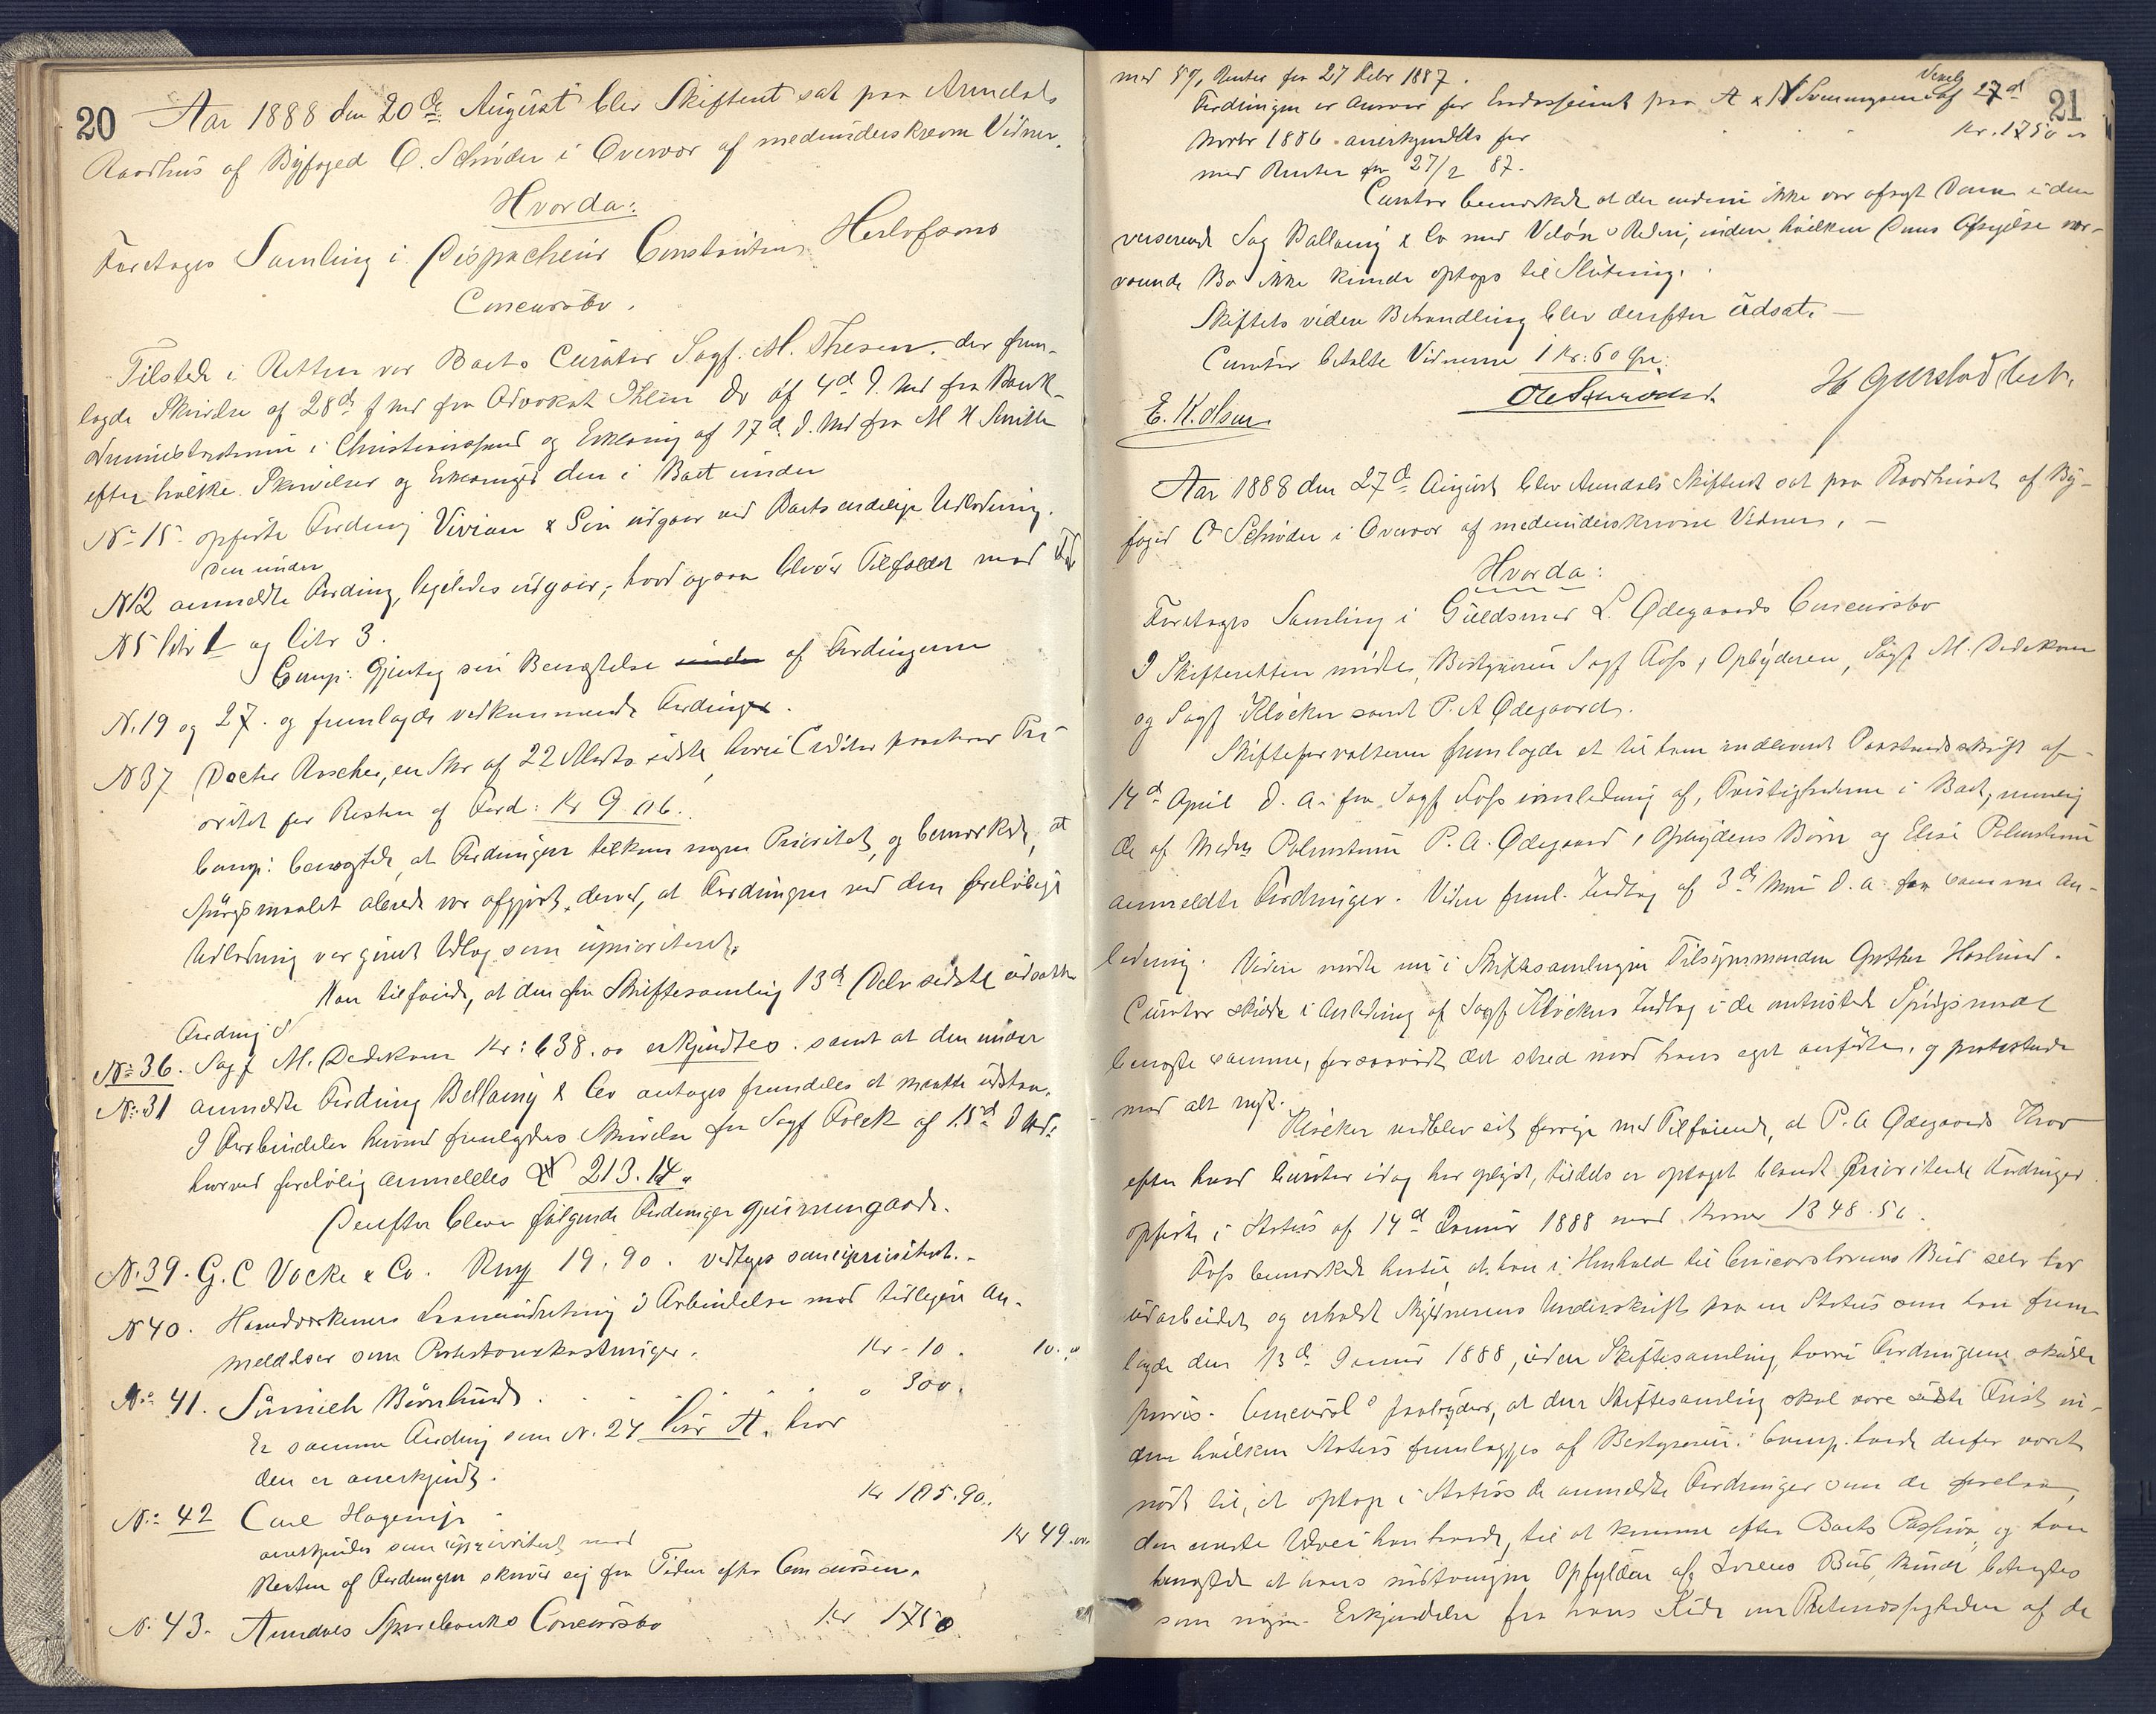 20
Aar 1888 den 20de August blev Skifteret sat paa Arendals
Raadhus af Byfoged O. Schrøder i Overvær af medunderskrevne Vidner.
Hvorda:
Foretoges Samling i Dispacheur Constantin Herlofsons
Concursbo.
Tilstede i Retten var Boets Curator Sagf. M. Thesen, der frem-
lagde Skrivelse af 28de f Md fra Advokat Klein Do af 4de d. Md fra Bank-
administrationen i Christianssand og Erklæring af 17de d. Md fra M H Smith
efter hvilke Skrivelser og Erklæringer den i Boet under
No 15 opførte Fordring Vivian & Søn udgaar ved Boets endelige Udlodning.
den under
N12 anmeldte Fordring, ligeledes udgaar, hvad ogsaa bliver Tilfældet med
N5 litr 1 og litr 3.
Comp: gjentog sin Benægtelse af Fordringerne
N.19 og 27. og fremlagde vedkommende Fordringer.
N37 Doctor Roscher, en Skr af 22 Marts sidste, hvori Creditor paastaar Pri-
oritet for Resten af Ford: Kr 9
Comp: benægtede, at Fordringen tilkom nogen Prioritet, og bemærkede, at
Spørgsmaalet allerede var afgjort derved, at Fordringen ved den foreløbige
Udlodning var givet Udlæg som uprioriteret.
Han tilføiede, at den fra Skiftesamling 13de sidste udsatte
Fordring
No 36. Sagf M. Dedekam Kr: 638.00 erkjendtes. samt at den under
No: 31 anmeldte Fordring Bellamy & Co antages fremdeles at maatte udstaa.
I Forbindelse hermed fremlagdes Skrivelse fra Sagf Falck af 15de d Md:
hvorved foreløbig anmeldtes 213.14
Derefter blev følgende Fordringer gjennemgaaede.
N.39. G. C Vocke & Co. Rmf 19.90. vedtages som uprioriteret.
N40. Haandværkernes Laaneindretning i Forbindelse med tidligere An-
meldelser som Protestomkostninger. Kr. 10. 10.
No: 41. Bjørnlund 300.
Er samme Fordring som N. 24 litr A. hvor
den er anerkjendt.
N.: 42 Carl Kr 185.90.
anerkjendes som uprioriteret med Kr 49.
Resten af Fordringen skriver sig fra Tiden efter Concursen.
N. 43. Arendals Sparebanks Concursbo Kr 1750
21
med 5%, Renter fra 27 Febr 1887.
Vexel
Fordringen er Ansvar for Endossement paa A & N Svenningsen af 27de
Novbr 1886 anerkjendtes for Kr. 1750
med Renter fra 27/2 87.
Curator bemærkede at der endnu ikke var afsagt Dom i den
verserende Sag Bellamy & Co mod Rederi, inden hvilken Doms Afsigelse nær-
værende Bo ikke kunde optages til Slutning.
Skiftets videre Behandling blev derefter udsat.
Curator betalte Vidnerne 1 Kr: 60 Øre:
E. K. Olsen. O Schrøder. H Gjerstad
Aar 1888 den 27de August blev Arendals Skifteret sat paa Raadhuset af By-
foged O Schrøder i Overvær af medunderskrevne Vidner.
Hvorda:
Foretoges Samling i Guldsmed L. Ødegaards Concursbo
I Skifteretten mødte, Bestyreren Sagf Foss, Opbyderen, Sagf M. Dedekam
og Sagf Kløcker samt P. A Ødegaard.
Skifteforvalteren fremlagde et til ham indleveret Paastandsskrift af
14de April d. A. fra Sagf Foss i Anledning af Tvistighederne i Boet, nemlig
de af P. A. Ødegaard, Opbyderens Børn og Elise
anmeldte Fordringer. Videre freml. Indlæg af 3de Mai d. a. fra samme An-
ledning. Videre mødte nu i Skiftesamlingen Tilsynsmanden Haslund.
Curator skulde i Anledning af Sagf Kløckers Indlæg i de omtvistede Spørgsmaal
benægte samme, forsaavidt det stred mod hans eget anførte, og protesterede
mod alt nyt.
Kløcker vedblev sit forrige med Tilføiende, at P. A Ødegaards Krav
efter hvad Curator idag har oplyst, tildels er optaget blandt prioriterede Fordringer
opførte i Status af 14de Januar 1888 med Kroner 1348.50.
Foss bemærkede hertil at han i Henhold til Concurslovens Bud selv har
udarbeidet og erholdt Skyldnerens Underskrift paa en Status som han frem-
lagde den 13de Januar 1888, i den Skiftesamling hvori Fordringerne skulde
prøves. Concursl paabyder, at den Skiftesamling skal være sidste Frist in-
den hvilken Status fremlægges af Bestyreren. Comp. havde derfor været
nødt til, at optage i Status de anmeldte Fordringer som de forelaa,
den eneste Udvei han havde, til at komme efter Boets Passiva, og han
benægtede at hans nødtvungne Opfyldelse af Lovens Bud kunde betragtes
som nogen Erkjendelse fra hans Side om Retmæssigheden af de